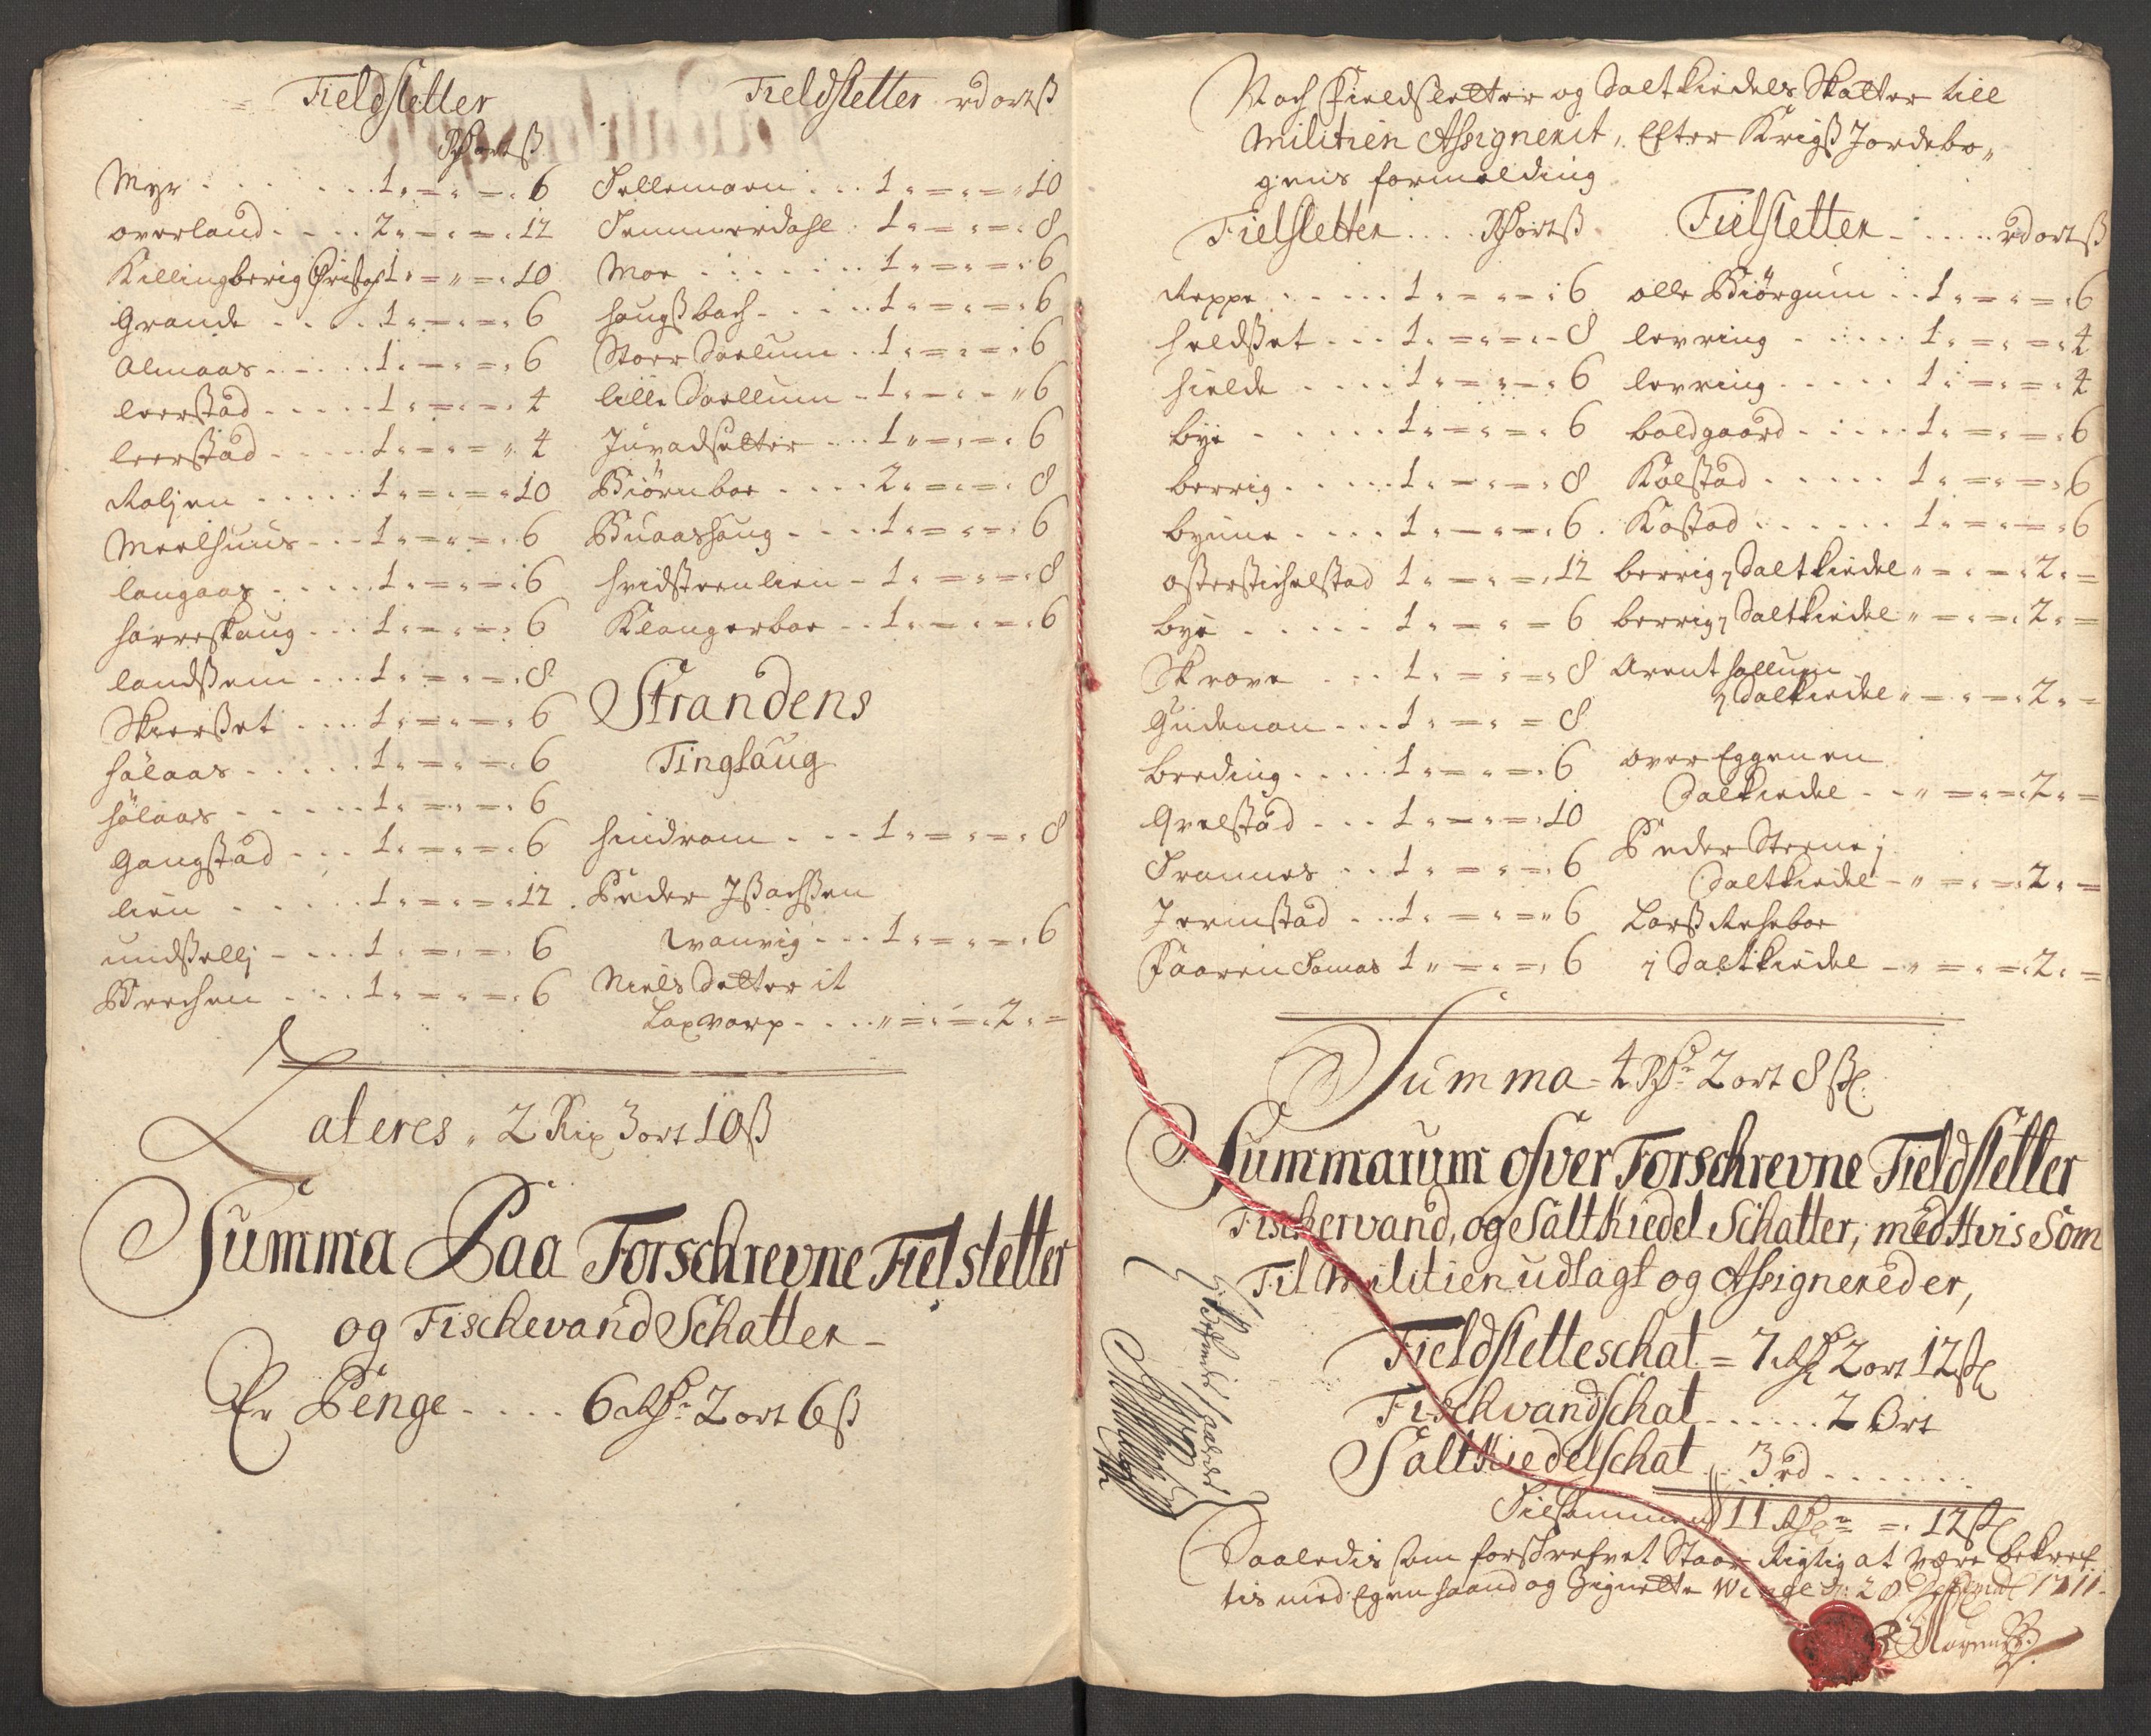 Fieldsletter
Rd ort ß
Myr - - - 1 " = " = " 6
overland - - - 2 " = " = " 12
Killingberig Christoph 1 " = " = " 10
Grande - - - 1 " = " = " 6
Almaas - - - 1 " = " = " 6
leerstad - - - 1 " = " = " 4
leerstad - - - 1 " = " = " 4
Roljen - - - 1 " = " = " 10
Meelhuus - - - 1 " = " = " 6
langaas - - - 1 " = " = " 6
harreskaug - - - 1 " = " = " 6
landßem - - - 1 " = " = " 8
Skierßet - - - 1 " = " = " 6
hölaas - - - 1 " = " = " 6
hölaas - - - 1 " = " = " 6
Gangstad - - - 1 " = " = " 6
lien - - - 1 " = " = " 12
undßellj - - - 1 " = " = " 6
Brechen - - - 1 " = " = " 6
Fieldsletter rd ort ß
Sellemoen - - - 1 " = " = " 10
Semmerdahl - 1 " = " = " 8
Moe - - - 1 " = " = " 6
haugßbach - - - 1 " = " = " 6
Stoer Soelum - 1 " = " = " 6
lille Soellum - 1 " = " = " 6
Juvadsletter - - - 1 " = " = " 6
Biörnboe - - - 2 " = " = " 8
Buaashaug - - - 1 " = " = " 6
hvidsteenlien - 1 " = " = " 8
Klangerboe - - 1 " = " = " 6
Strandens
Tinglaug
hindrem - - - 1 " = " = " 8
Peder Jßachßen
Qvanvig - - - 1 " = " = " 6
Niels Setter it
Laxvarp - - - " = " = " 2 " =
Lateres " 2 Rix 3 ort 10 ß
Summa Paa Forschrevne Fielsletter
og Fischevand Schatter -
Er Penge - - - - 6 Rdr 2 ort 6 ß
Noch Fieldsletter og Saltkiedels Skatter till
Militien Assignerit, Efter Krigß Jordebo,,
gens formelding
Fielsletter - - - Rd ort ß
Reppe - - - 1 " = " = " 6
heldßet - - - 1 " = " = " 8
hielde - - - 1 " = " = " 6
bye - - - 1 " = " = " 6
berrig - - - 1 " = " = " 8
byune - - - 1 " = " = " 6
osterstichelstad 1 " = " = " 12
bye - - - 1 " = " = 6
Skrove - - - 1 " = " = " 8
Gudenon - - - 1 " = " = 8
breding - - - 1 " = " = " 6
Qvelstad - - - 1 " = " = " 10
Framnes - - 1 " = " = " 6
Jermstad - - 1 " = " = " 6
Faaren Tomas 1 " = " = " 6
Fielsletter - - - rd ort ß
olle Biörgum - - 1 " = " = " 6
levring - - - 1 " = " = " 4
levring - - - 1 " = " = " 4
boldgaard - - - 1 " = " = " 6
Kolstad - - - 1 " = " = " 6
Kostad - - - 1 " = " = " 6
berrig 1 Saltkiedel " = " = " 2 " =
berrig 1 Saltkiedel " = " = " 2 " =
Arent hallum
1 Saltkiedel " = " = " 2 " =
over Eggen en
Saltkiedel - - " = " = " 2 " =
Peder Steene j
Saltkiedel - " = " = " 2 " =
Larß Reheboe
j Saltkiedel - " = " = " 2 " =
Summa - 4 Rdr 2 ort 8 ß
Summarum ofver Forschrevne Fieldsletter
Fischervand, og Saltkiedel Schatter, med Hvis Som
Til Militien udlagt og Assignered er,
Fieldsletteschat = 7 Rd 2 ort 12 ß
Fischvandschat - - - - - 2 Ort
Saltkiedelschat - - 3 rd - - - - -
Tilsammen 11 Rdr = " 12 ß
Saaledis som forschrefvet Staar Rigtig at være bekref
tis med Egen haand og Zignette Winge d: 28 1711